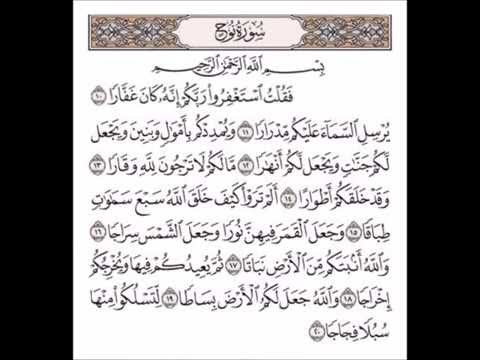 سُورَةُ نُوحٍ
بِسْمِ اللَّهِ الرَّحْمَٰنِ الرَّحِيمِ
فَقُلْتُ ٱسْتَغْفِرُوا۟ رَبَّكُمْ إِنَّهُۥ كَانَ غَفَّارًا ١٠
يُرْسِلِ ٱلسَّمَآءَ عَلَيْكُم مِّدْرَارًا ١١ وَيُمْدِدْكُم بِأَمْوَٰلٍ وَبَنِينَ وَيَجْعَل
لَّكُمْ جَنَّٰتٍ وَيَجْعَل لَّكُمْ أَنْهَٰرًا ١٢ مَّا لَكُمْ لَا تَرْجُونَ لِلَّهِ وَقَارًا ١٣
وَقَدْ خَلَقَكُمْ أَطْوَارًا ١٤ أَلَمْ تَرَوْا۟ كَيْفَ خَلَقَ ٱللَّهُ سَبْعَ سَمَٰوَٰتٍ
طِبَاقًا ١٥ وَجَعَلَ ٱلْقَمَرَ فِيهِنَّ نُورًا وَجَعَلَ ٱلشَّمْسَ سِرَاجًا ١٦
وَٱللَّهُ أَنۢبَتَكُم مِّنَ ٱلْأَرْضِ نَبَاتًا ١٧ ثُمَّ يُعِيدُكُمْ فِيهَا وَيُخْرِجُكُمْ
إِخْرَاجًا ١٨ وَٱللَّهُ جَعَلَ لَكُمُ ٱلْأَرْضَ بِسَاطًا ١٩ لِّتَسْلُكُوا۟ مِنْهَا
سُبُلًا فِجَاجًا ٢٠